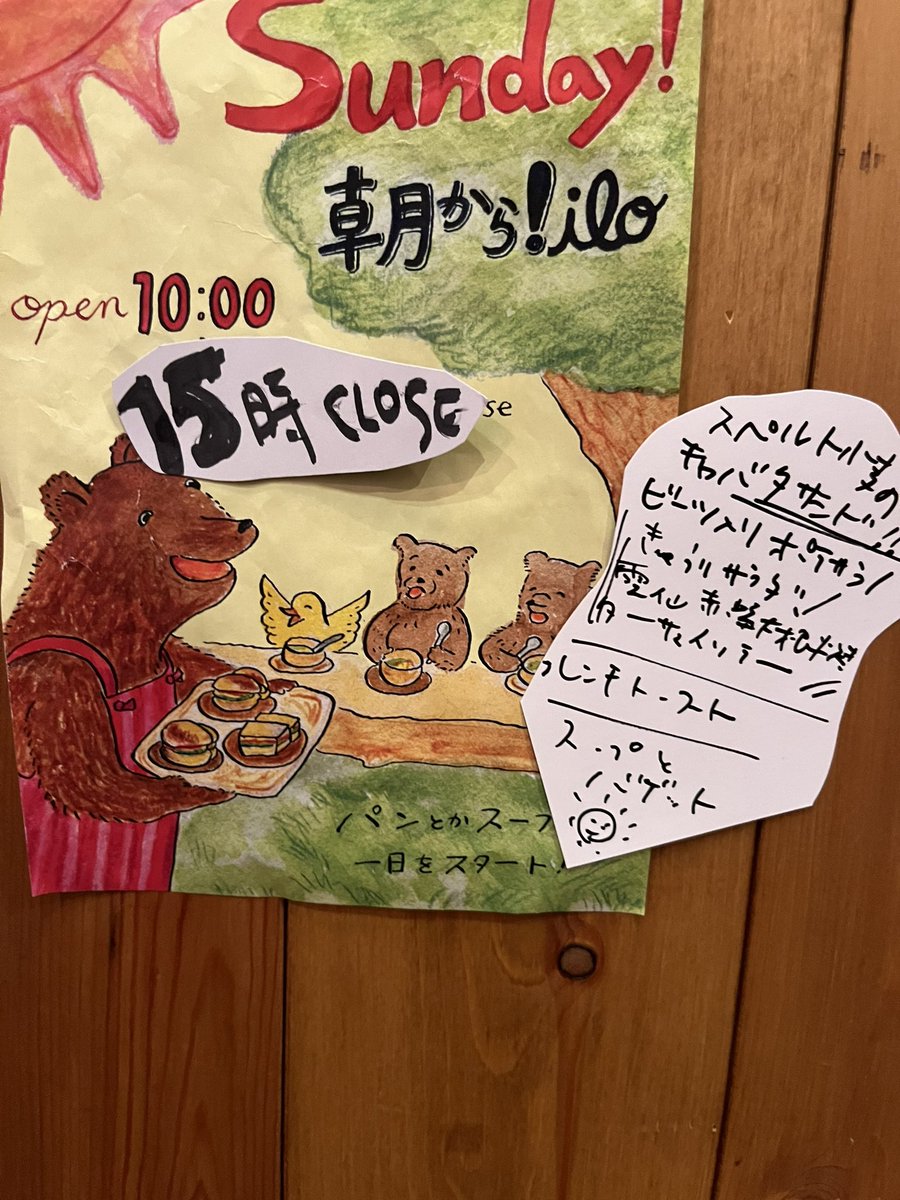 Sunday!
朝から!ilo
open 10:00
15時 CLOSE
se
スペルト小麦の
キャバタサンド!!
ビーツ入りポテサラ/
きゅうりサラダ/
雲仙赤
フレンチトースト
スープと
バゲット
パンとかスープ
一日をスタート!